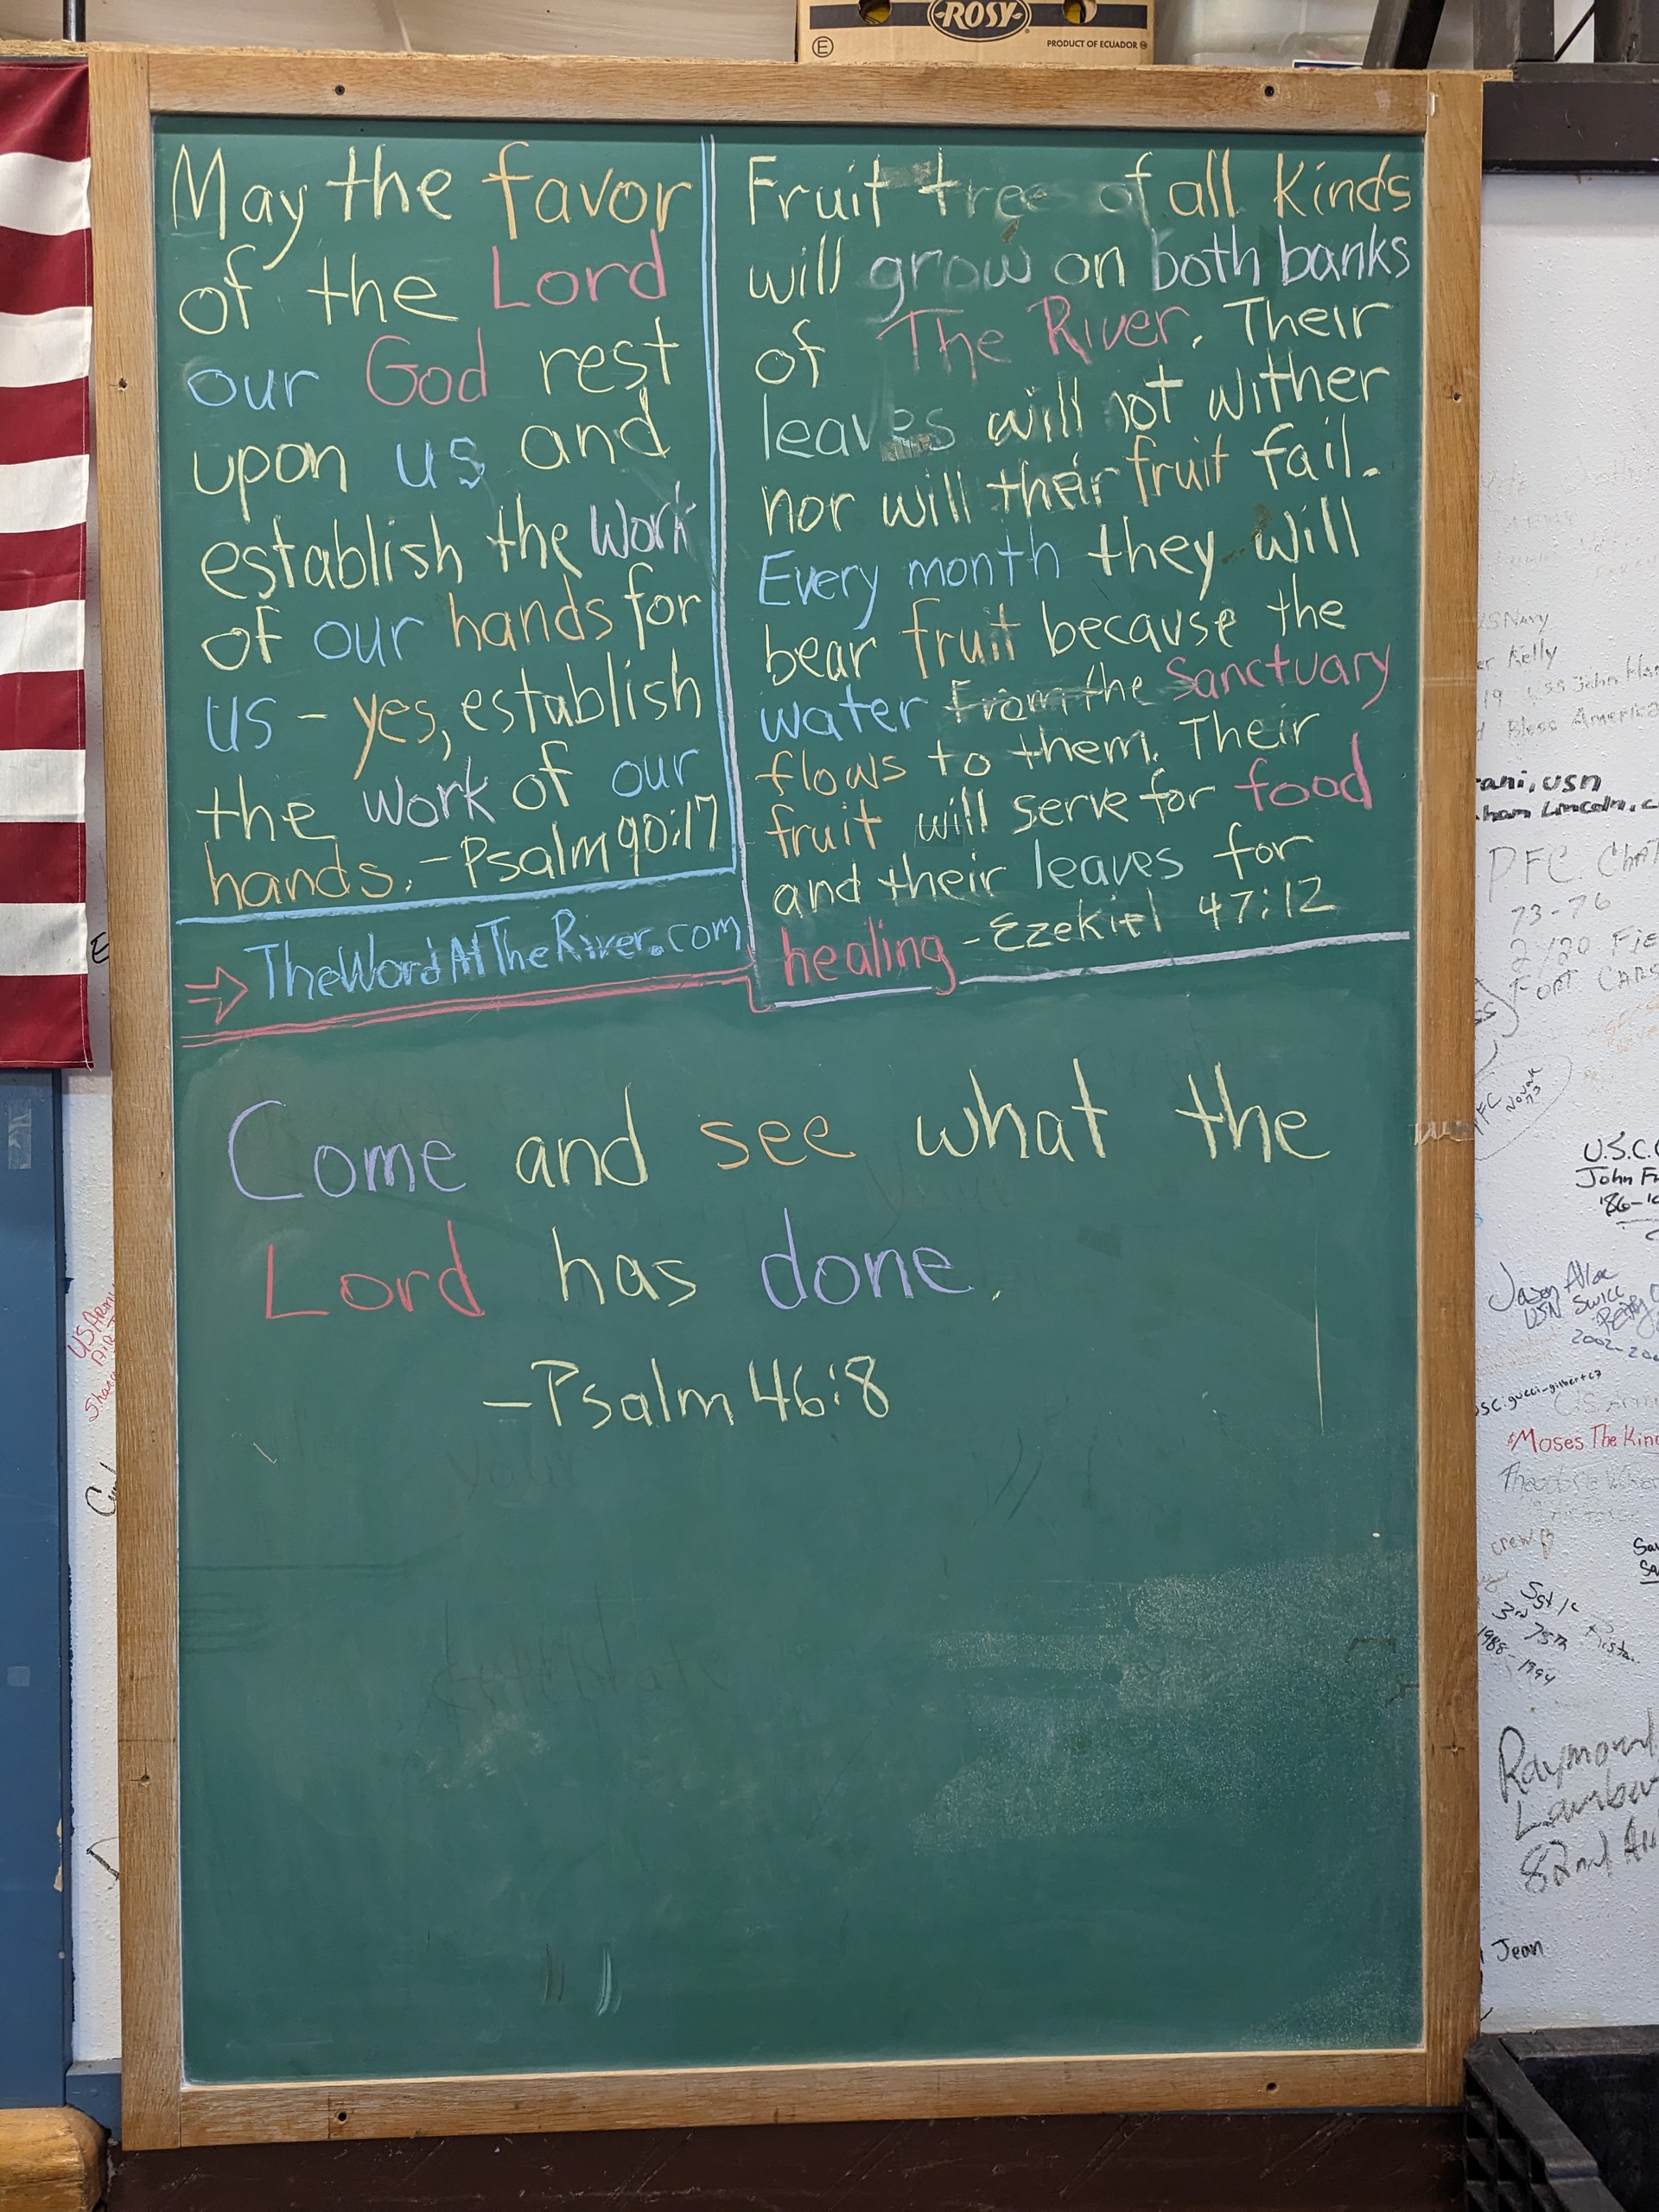 ROSY
PRODUCT OF ECUADOR
May the favor
of the Lord
our God rest
upon us and
establish the work
of our hands for
us – yes, establish
the work of our
hands. – Psalm 90:17
TheWordAtTheRiver.com
Fruit trees of all Kinds
will grow on both banks
of The River. Their
leaves will not wither
nor will their fruit fail.
Every month they will
bear fruit because the
water from the Sanctuary
flows to them. Their
fruit will serve for food
and their leaves for
healing – Ezekiel 47:12
Come and see what the
Lord has done.
– Psalm 46:8
US Navy
Kelly
Bless America
USN
Lincoln
PFC
73-76
2/20
FORT
PFC
U.S.C.G
John
'86-
Jason
USN
2002-
Moses The
crew
75th
1988-1994
Raymond
82nd
Jean
US ARMY